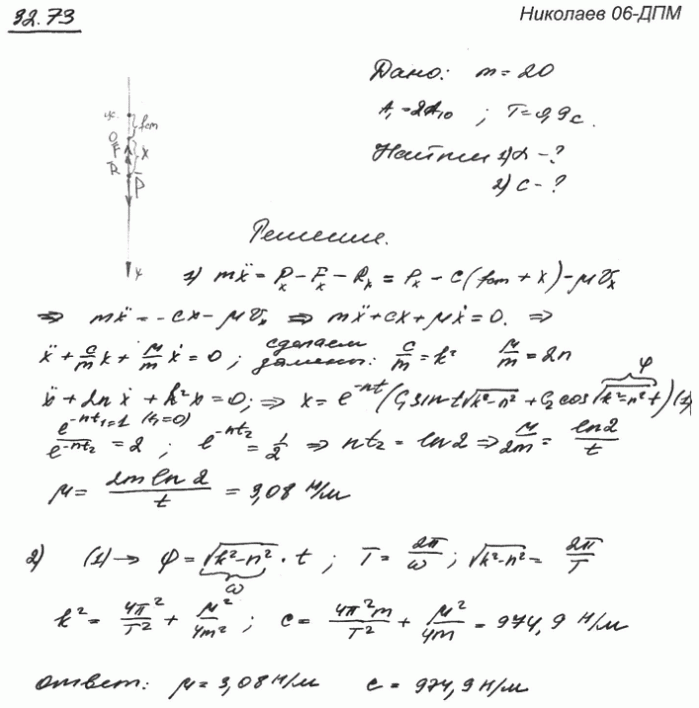 32.73
Николаев 06-ДПМ
Дано: m = 20
A₁ = 2A₁₀ ; T = 0,9 c.
Найти 1) α - ?
2) c - ?
fcm
O
F
x
R
P
x
Решение.
1) mẍ = Pₓ - Fₓ - Rₓ = Pₓ - c(fcm + x) - μVₓ
⇒ mẍ = -cx - μVₓ ⇒ mẍ + cx + μẋ = 0. ⇒
ẍ + c/m x + μ/m ẋ = 0 ; сделаем замены: c/m = k² μ/m = 2n
ẍ + 2nẋ + k²x = 0; ⇒ x = e^(-nt) (C₁ sin t√(k²-n²) + C₂ cos √(k²-n²) t) (1) φ
e^(-nt₁)=1 (t₁=0) / e^(-nt₂) = 2 ; e^(-nt₂) = 1/2 ⇒ nt₂ = ln2 ⇒ μ/2m = ln2/t
μ = 2m ln 2 / t = 3,08 н/м
2) (1) → φ = √(k²-n²) · t ; T = 2π/ω ; √(k²-n²) = 2π/T
ω
k² = 4π²/T² + μ²/4m² ; c = 4π²m/T² + μ²/4m = 974,9 н/м
ответ: μ = 3,08 н/м c = 974,9 н/м